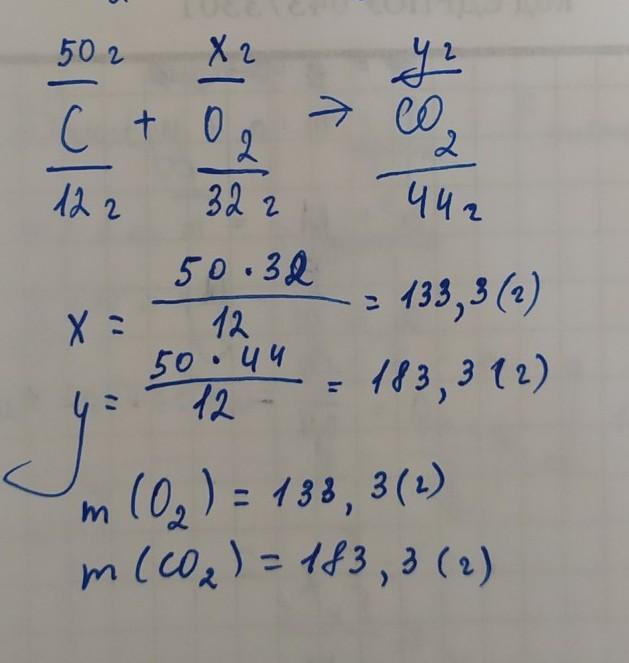 50 г x г y г
C + O₂ → CO₂
12 г 32 г 44 г
x = 50 · 32 / 12 = 133,3 (г)
y = 50 · 44 / 12 = 183,3 (г)
m (O₂) = 133,3 (г)
m (CO₂) = 183,3 (г)